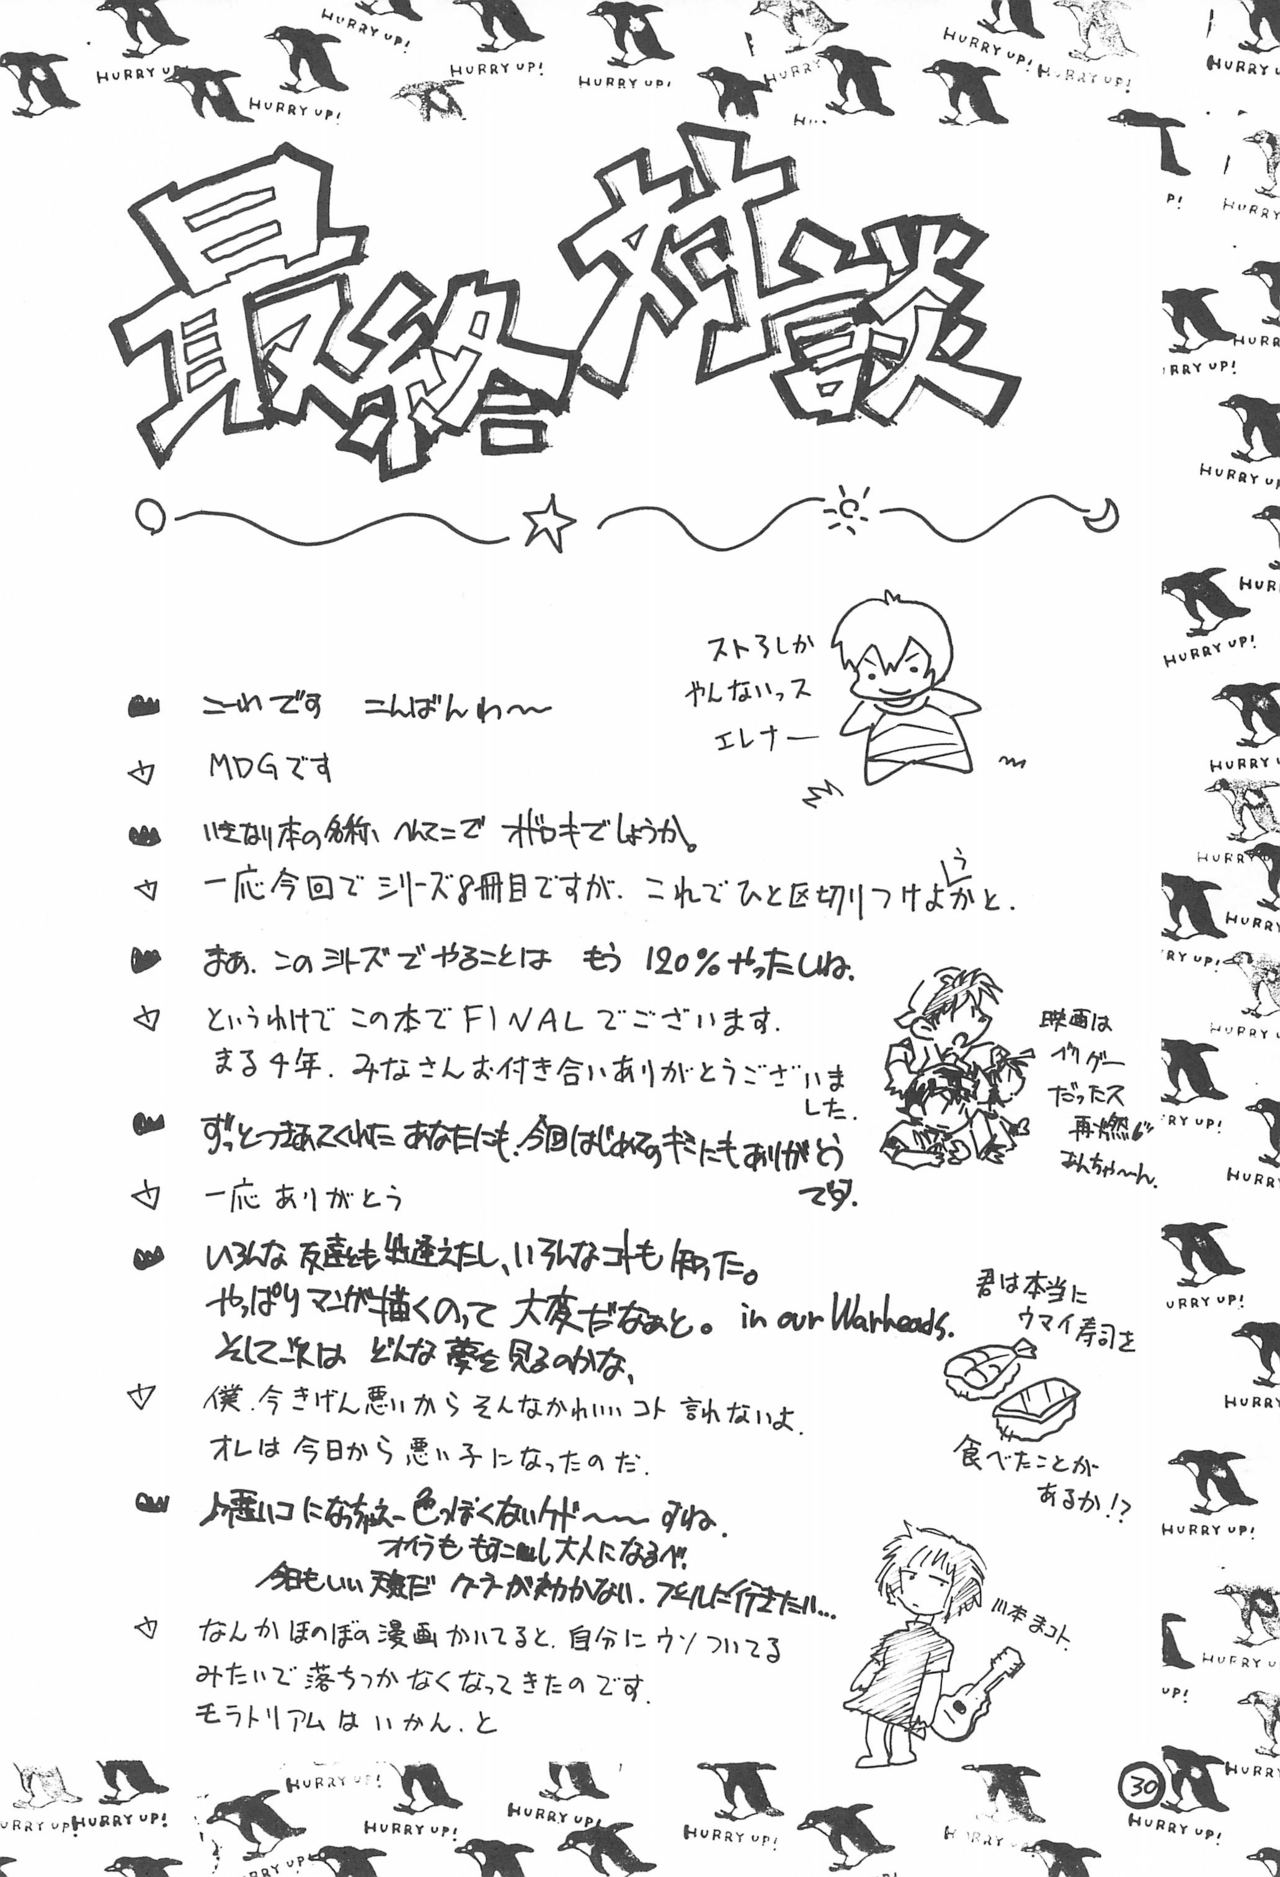 最終対談
ストろしか
やんないっス
エレナー
こーれです こんばんわ〜
MDGです
いきなり本の名称、へんてこで オドロキでしょうか。
一応今回でシリーズ8冊目ですが、これでひと区切りつけようかと.
まぁ、このシリーズでやることは もう 120%やったしね.
というわけでこの本でFINALでございます.
まる4年、みなさんお付き合いありがとうございま
した.
ずっとつきあってくれた あなたにも、今回はじめてのキミにもありがとう
です.
一応 ありがとう
映画は
だったス
再燃
いろんな 友達とも 出逢えたし、いろんなコトも 知った。
やっぱりマンガ描くのって 大変だなぁと。 in our Warheads.
そして次は どんな夢を見るのかな、
君は本当に
ウマイ寿司を
食べたことが
あるか!?
僕、今きげん悪いから そんなかわいいコト 言れないよ.
オレは今日から悪い子になったのだ.
悪いコになっちゃえー 色っぽくないケド〜〜 すね.
オイラも もすこーし大人になるべ!
今日もいい天気だ クーラーが効かない.
なんかほのぼの漫画かいてると、自分にウソついてる
みたいで落ちつかなくなってきたのです.
モラトリアムはいかん、と
川本まコト.
30
HURRY UP!
HURRY UP!
HURRY UP!
HURRY UP!
HURRY UP!
HURRY UP!
HURRY UP!
HURRY UP!
HURRY UP!
HURRY UP!